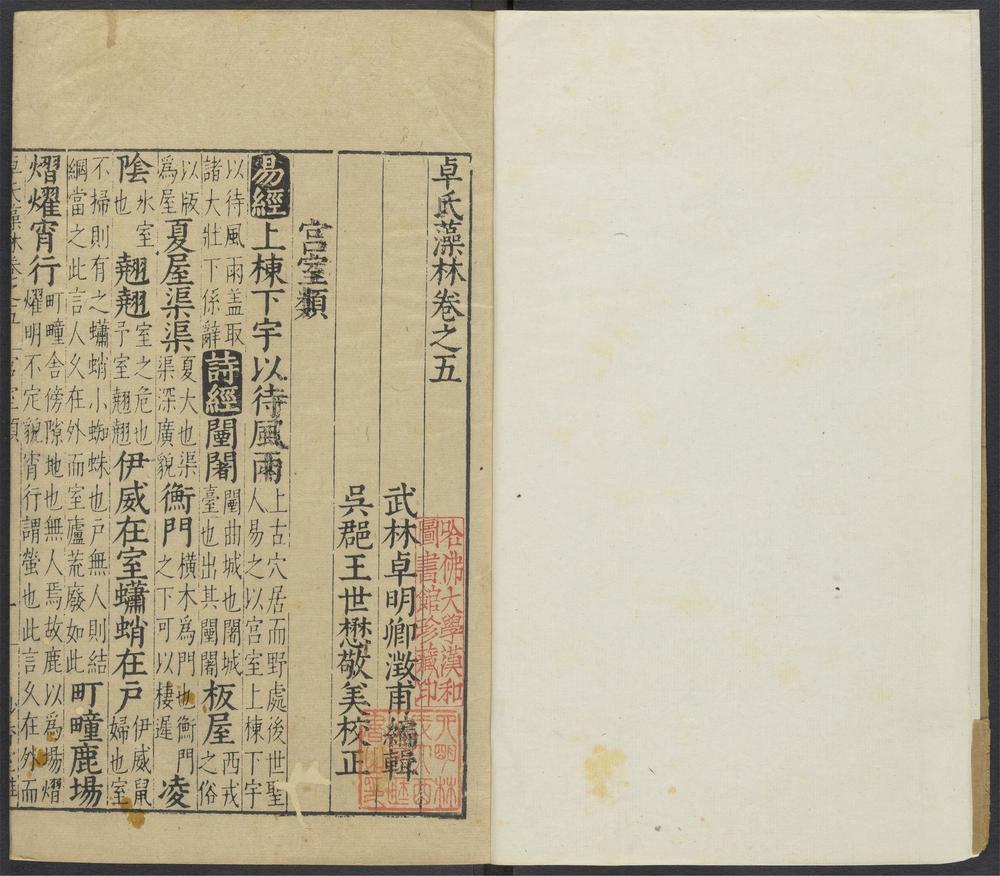 卓氏藻林卷之五
武林卓明卿澂甫編輯
吳郡王世懋敬美校正
宮室類
易經上棟下宇以待風雨上古穴居而野處後世聖人易之以宮室上棟下宇
以待風雨盖取諸大壯下係辭詩經闉闍闉曲城也闍城臺也出其闉闍板屋西戎之俗
以版為屋夏屋渠渠夏大也渠渠深廣貌衡門橫木為門也衡門之下可以棲遲凌
陰冰室也翹翹室之危也予室翹翹伊威在室蠨蛸在戶伊威鼠婦也室
不掃則有之蠨蛸小蜘蛛也戶無人則結網當之此言人久在外而室廬荒廢如此町疃鹿場
熠燿宵行町疃舍傍隙地也無人焉故鹿以為場熠燿明不定貌宵行謂螢也此言久在外而
卓氏藻林卷之五 宮室類 一
哈佛大學漢和圖書館珍藏印